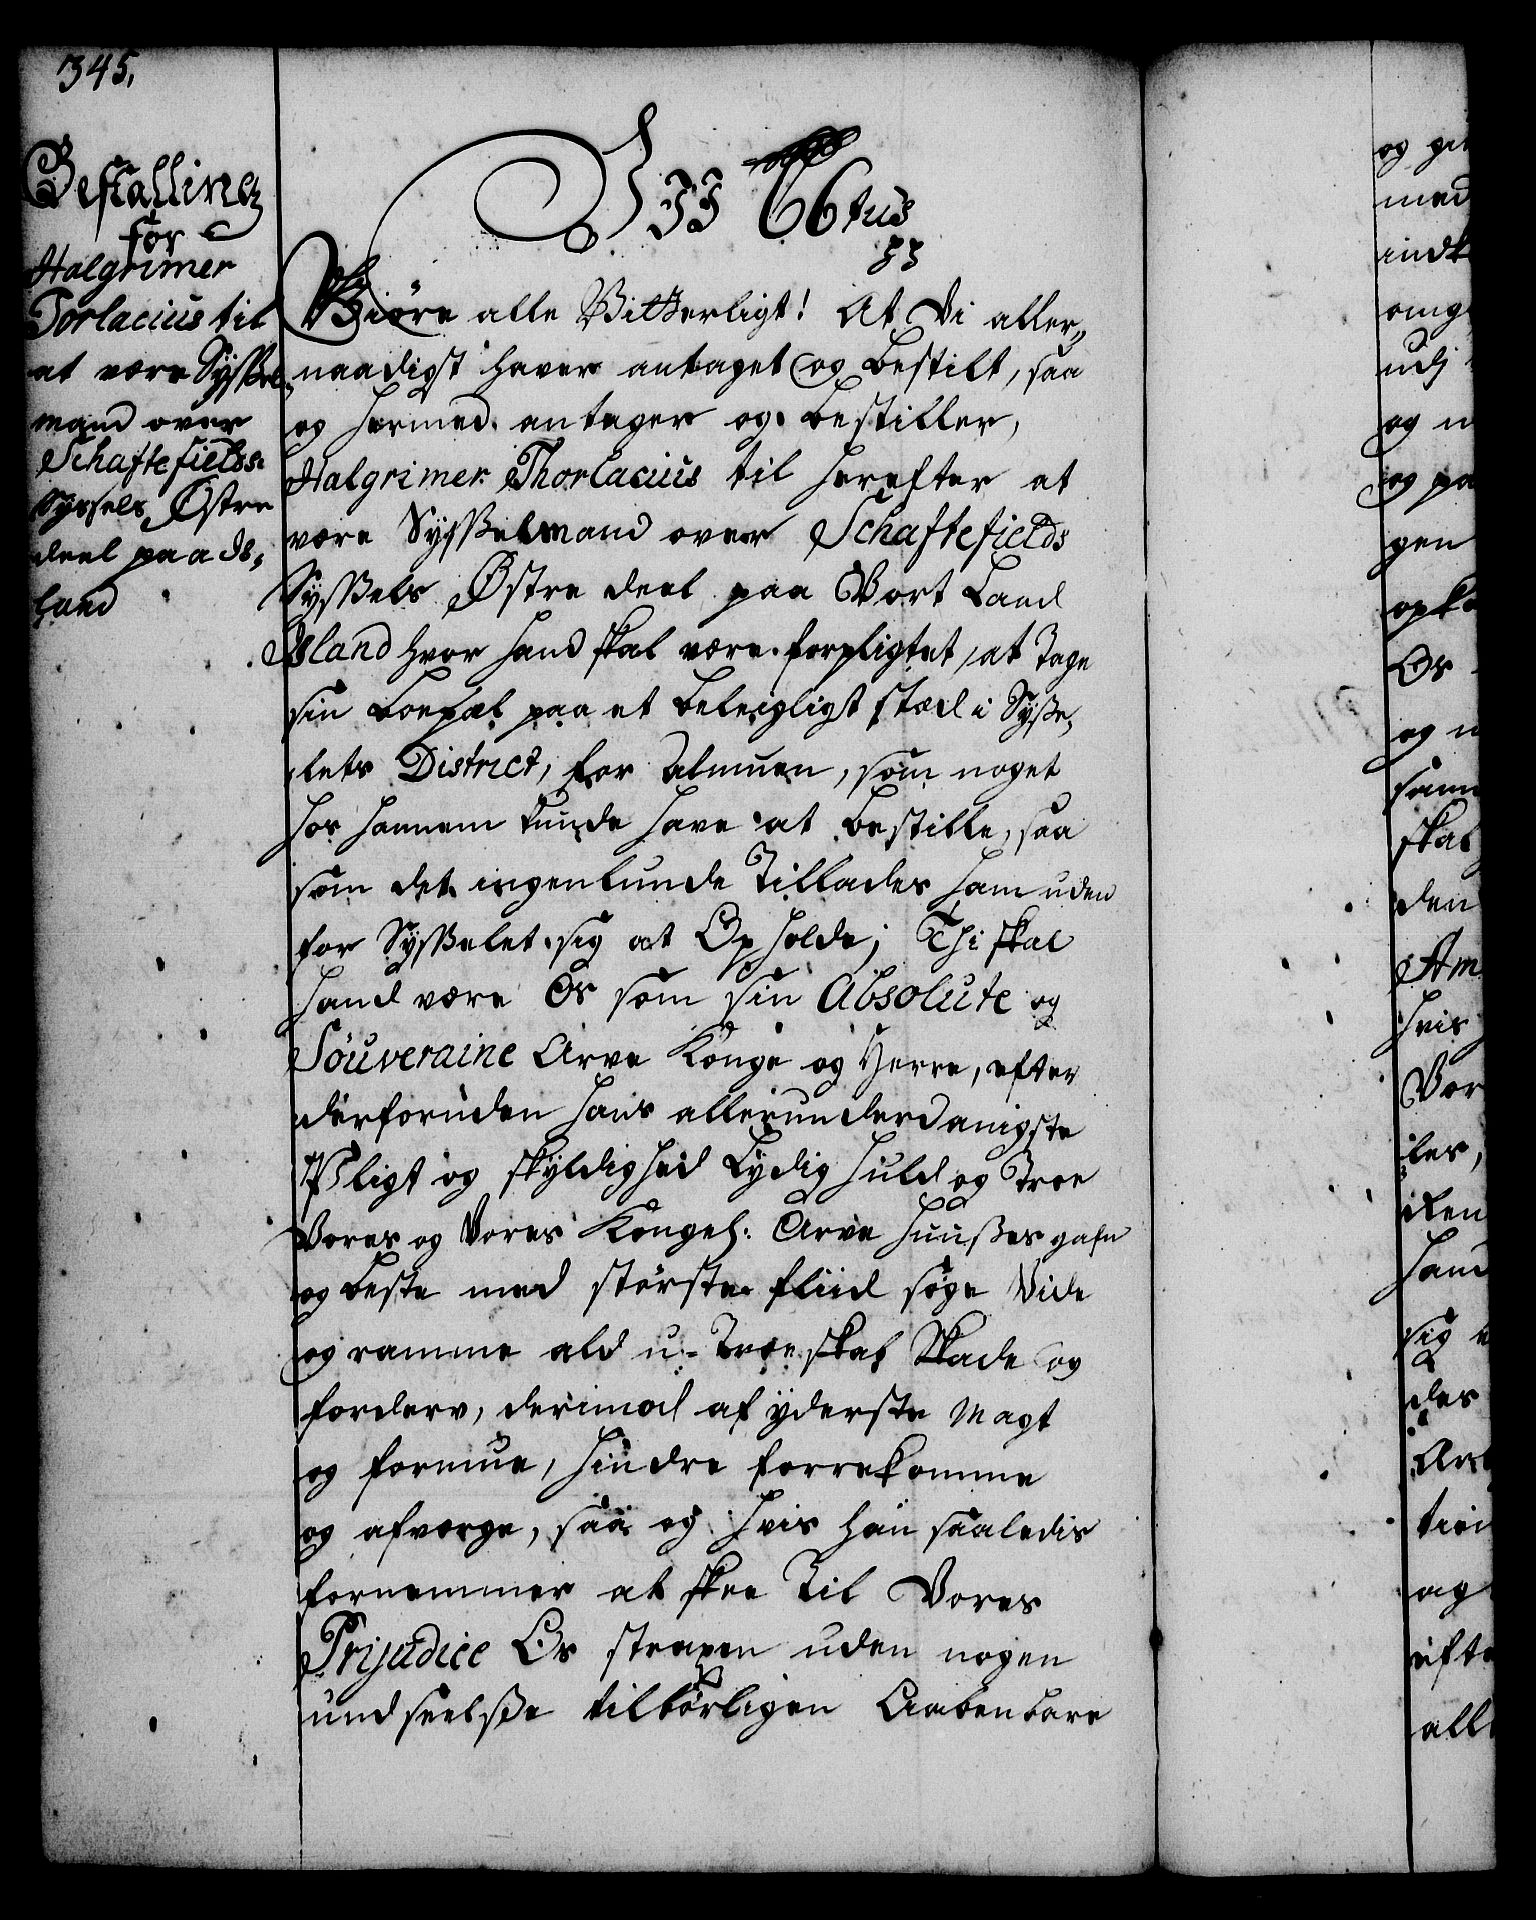 345.
Bestalling
for
Halgrimer
Torlacius til
at være Syssel-
mand over
Schaftefields
Syssels Østre
deel paa Is-
land
C6tus
Giøre alle Vitterligt! At Vi aller-
naadigst haver antaget og bestilt, saa
og hermed antager og bestiller,
Halgrimer Thorlacius til herefter at
være Sysselmand over Schaftefields
Syssels Østre deel paa Vort Land
Island hvor hand skal være forpligtet, at Tage
sin boepæl paa et beleigligt stæd i Sysse-
lets District, for Almuen, som noget
hos hannem kunde have at bestille, saa
som det ingenlunde Tillades ham uden
for Sysselet sig at Opholde; Thi skal
hand være Os som sin Absolute og
Souveraine Arve Konge og Herre, efter
derforuden hans allerunderdanigste
Pligt og skyldighed Lydig huld og Troe
Vores og Vores Kongel: Arve Huuses gafn
og beste med største fliid søge Vide
og ramme ald u-Troeskab Skade og
forderv, derimod af yderste Magt
og formue, hindre forrekomme
og afværge, saa og hvis han saaledis
fornemmer at skee Til Vores
Prijudice Os straxen uden nogen
undseelsse tilbørligen Aabenbare
og
med
indk
omg
udj
og
og pa
gen
opk
Os
og
samm
skal
den
Am
hvis
Vor
les,
Ren
hand
sig
des
tien
og
efte
alle